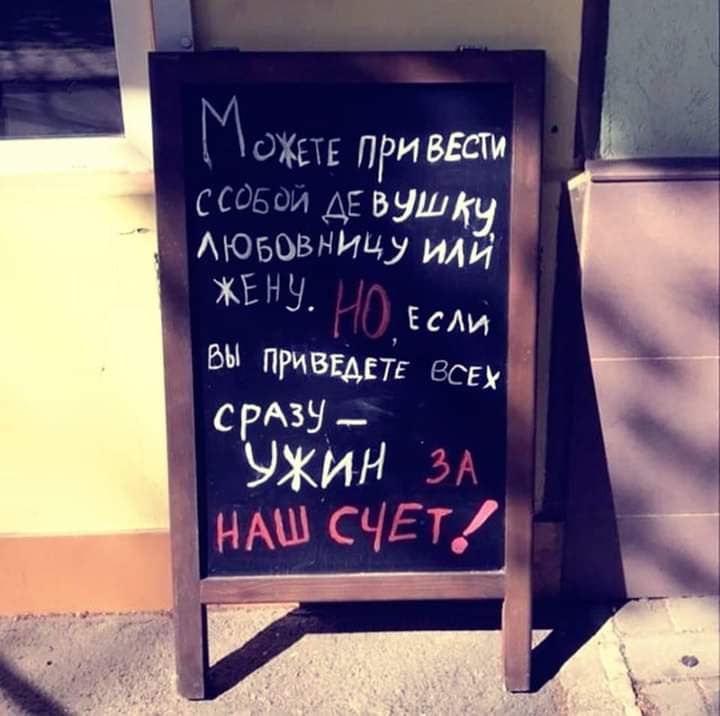 Можете привести
с собой девушку,
любовницу или
жену. НО, если
вы приведете всех
сразу –
ужин за
наш счет!